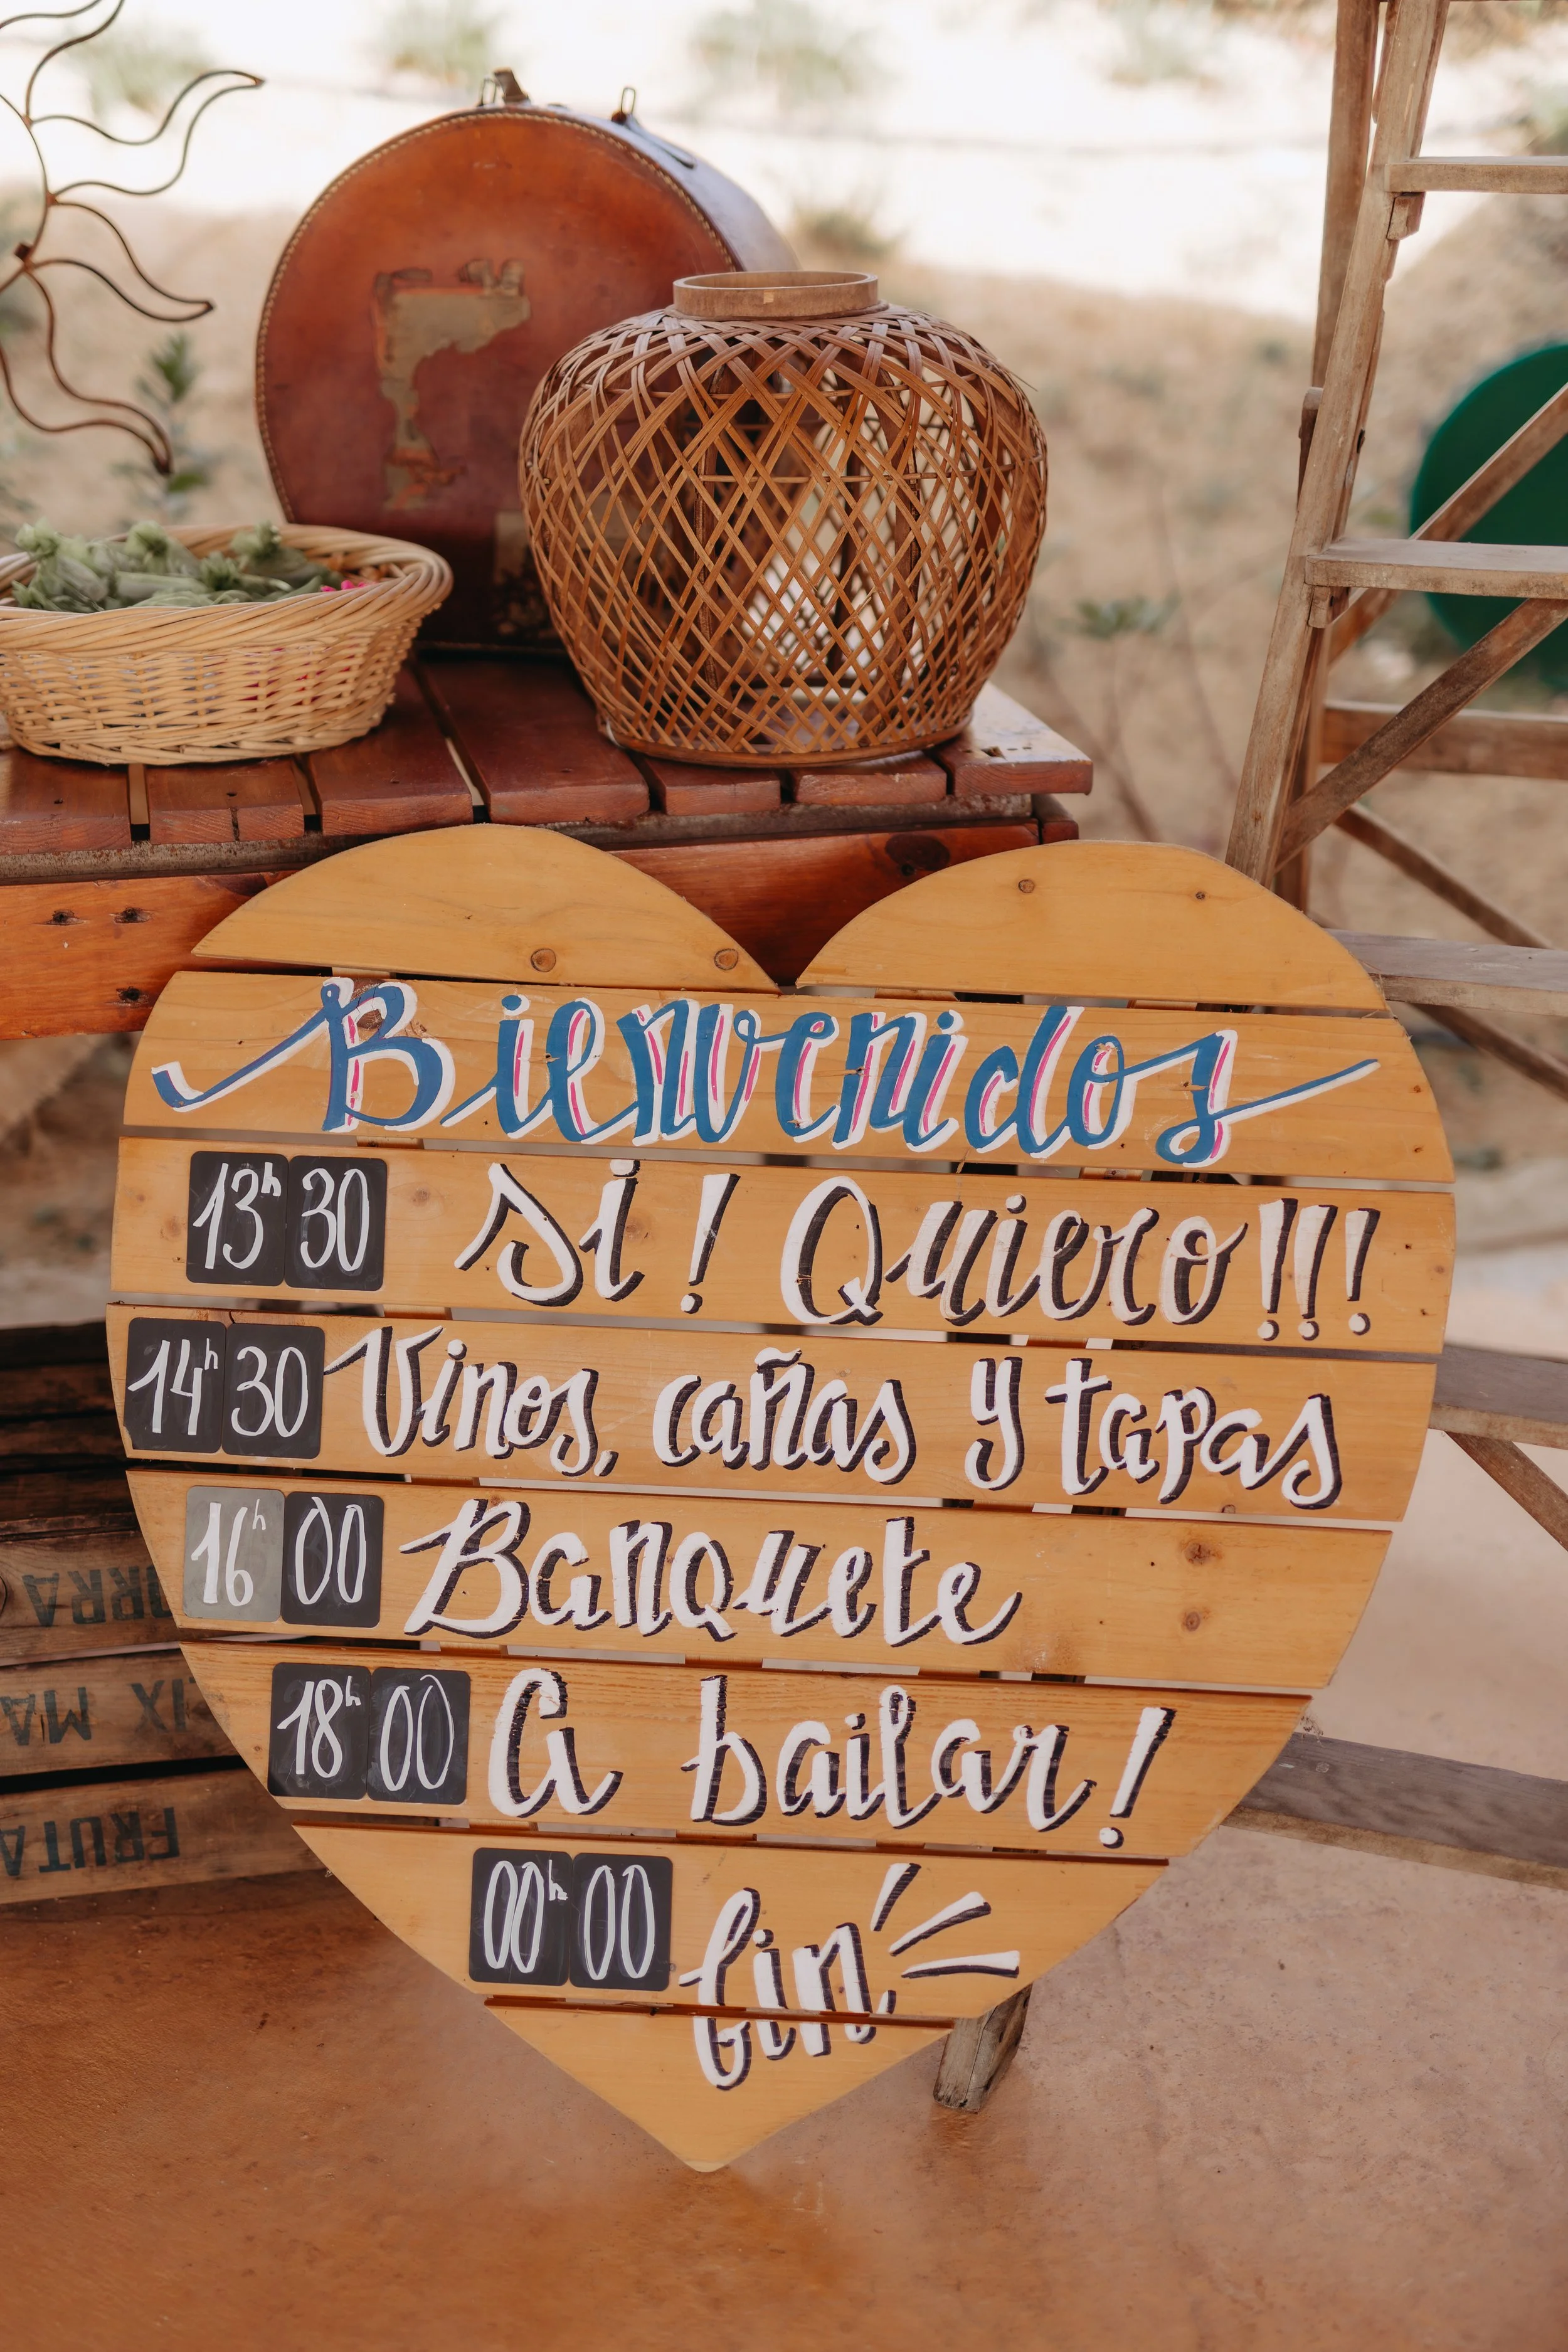 Bienvenidos
13h 30 Si! Quiero!!!
14h 30 Vinos, cañas y tapas
16h 00 Banquete
18h 00 A bailar!
00h 00 fin
FRUTA